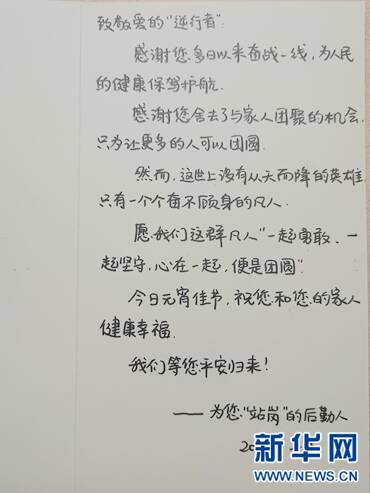 致敬爱的“逆行者”:
感谢您多日以来奋战一线,为人民
的健康保驾护航.
感谢您舍去了与家人团聚的机会,
只为让更多的人可以团圆.
然而,这世上没有从天而降的英雄,
只有一个个奋不顾身的凡人.
愿我们这群凡人“一起勇敢、一
起坚守,心在一起,便是团圆”.
今日元宵佳节,祝您和您的家人
健康幸福.
我们等您平安归来!
——为您“站岗”的后勤人
20
新华网
WWW.NEWS.CN